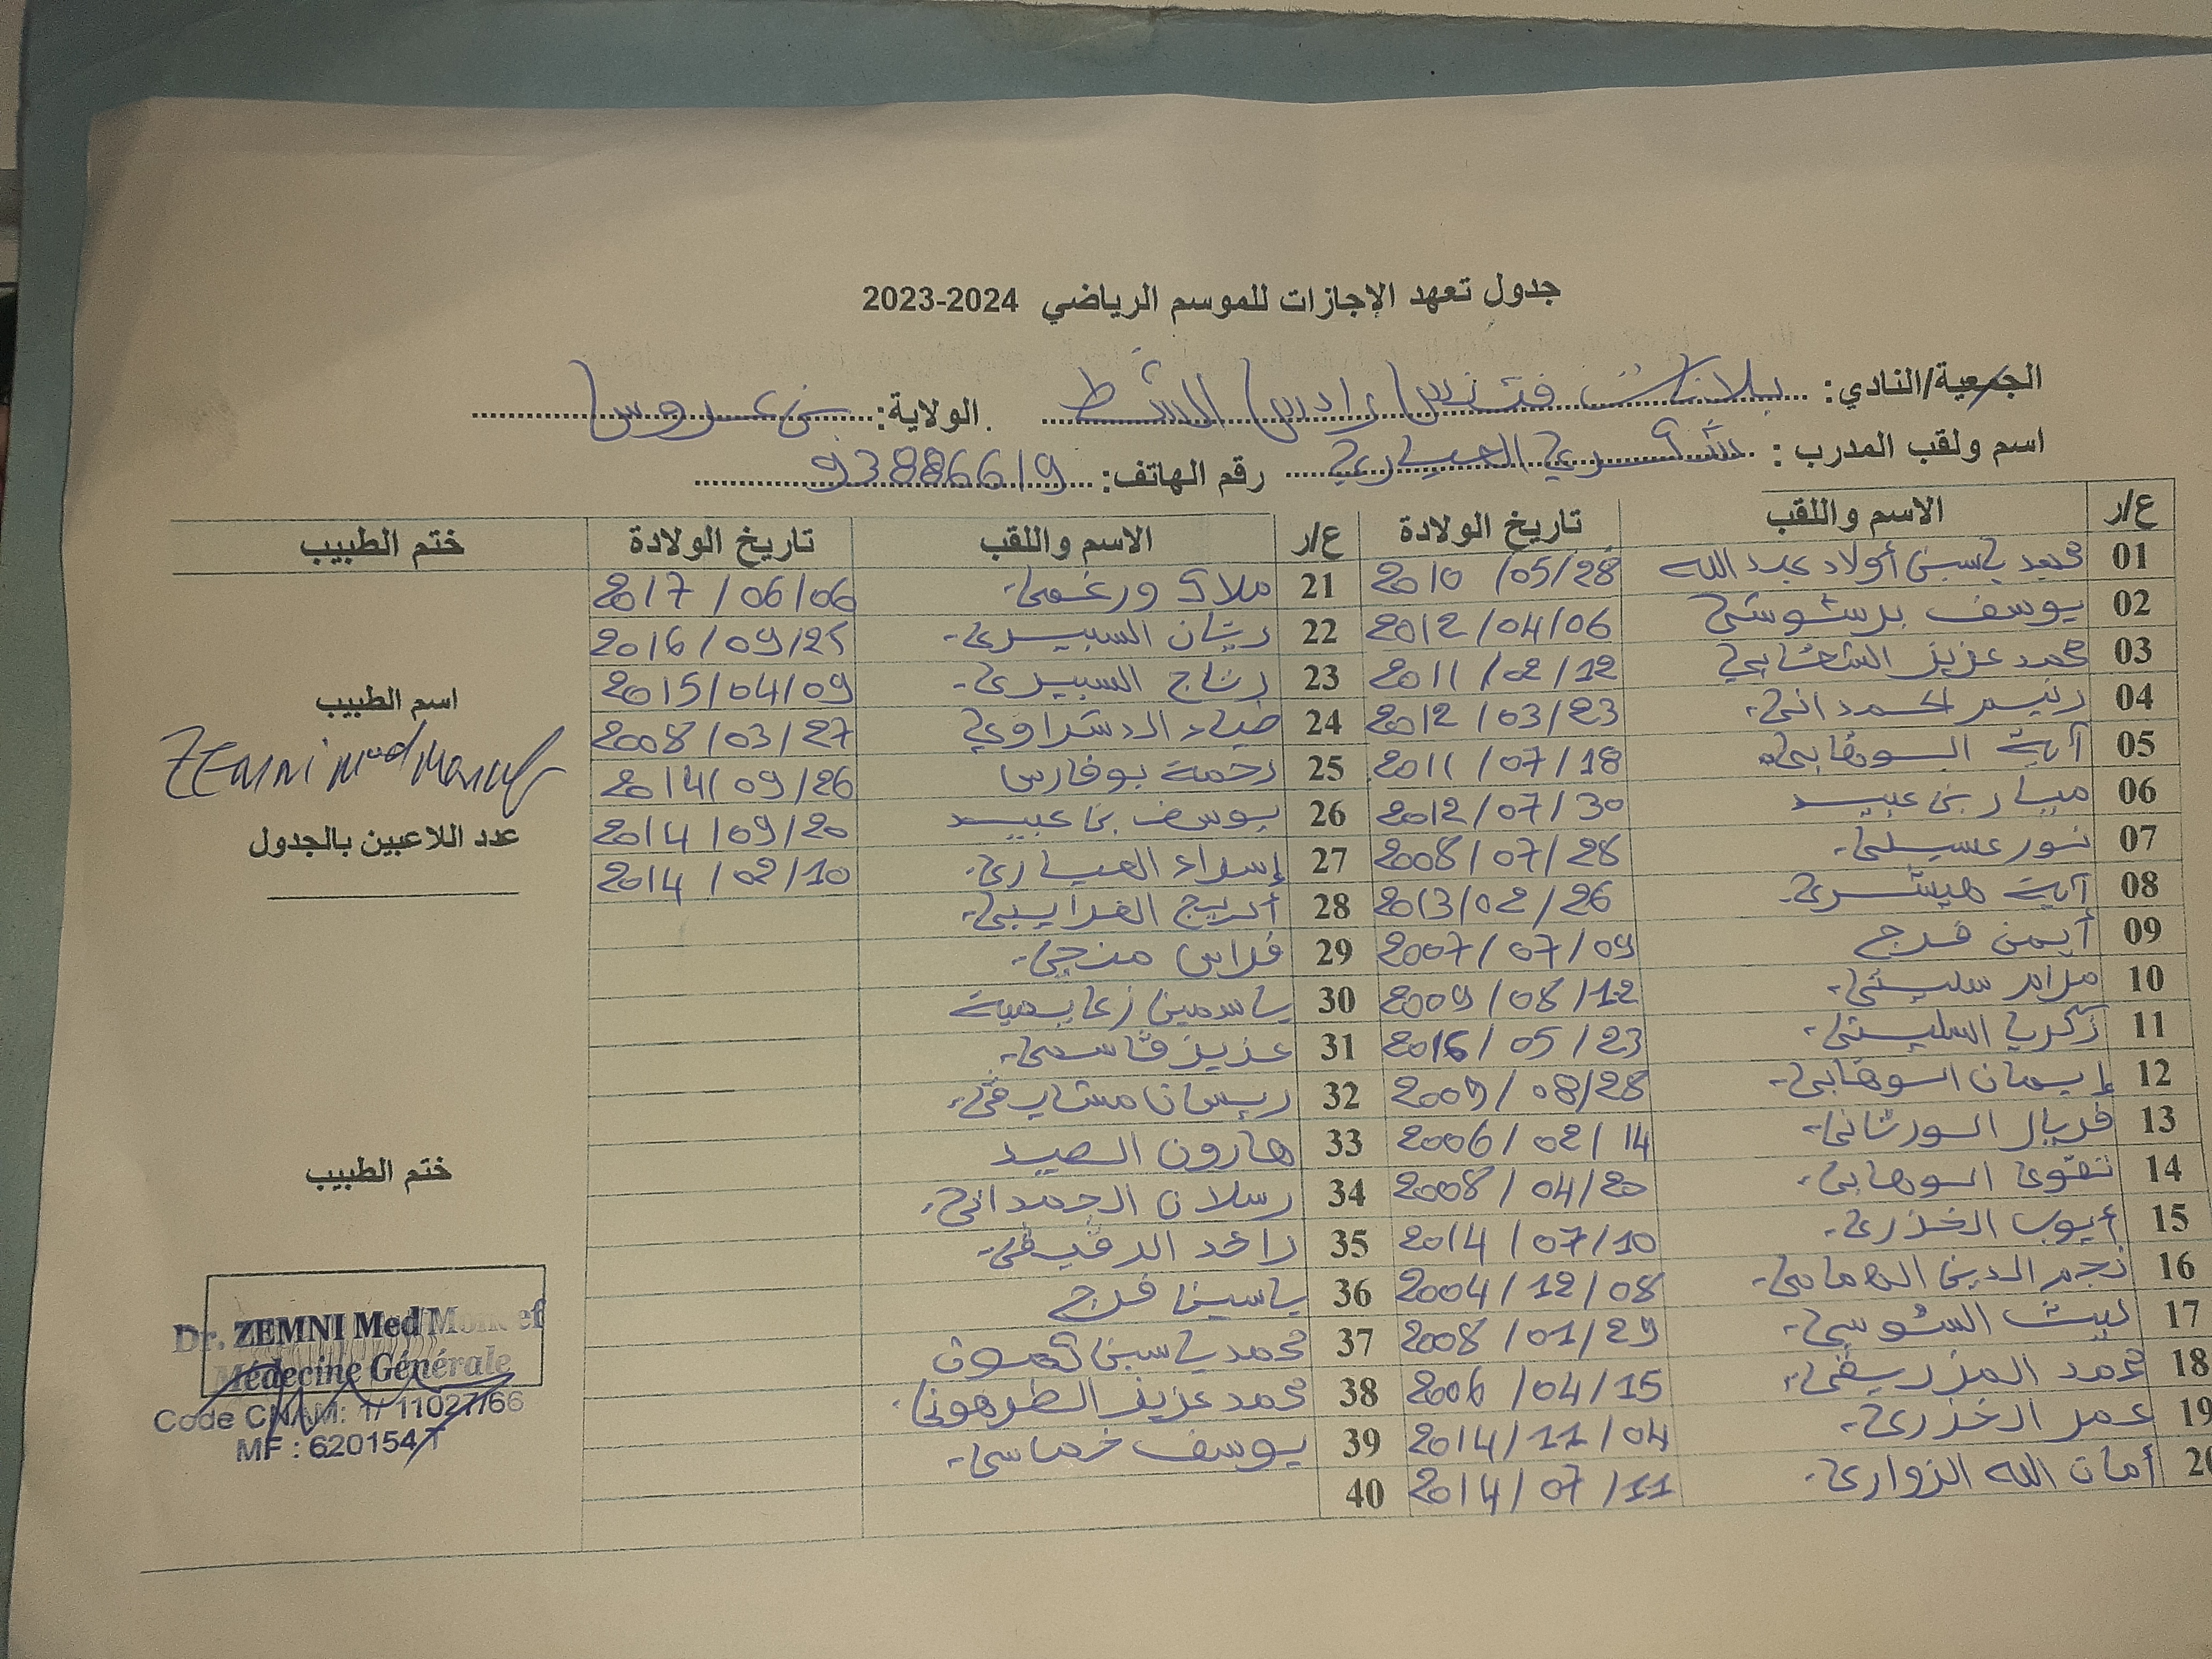 جدول تعهد الإجازات للموسم الرياضي 2023-2024
الجمعية/النادي: بلانات فتنس رادس الشط الولاية: بن عروس
اسم ولقب المدرب : شكري العياري رقم الهاتف: 93886619
ع/ر الاسم واللقب تاريخ الولادة ع/ر الاسم واللقب تاريخ الولادة ختم الطبيب
01 محمد ياسين أولاد عبد الله 2010 /05/28 21 ملاك ورغمي 2017 / 06/06
02 يوسف 2012 /04/06 22 ريان السبيري 2016 / 09/25
03 محمد عزيز الشعابي 2011 / 02/12 23 رتاج السبيري 2015/04/09
04 رنيم الحمداني 2012 / 03/23 24 ضياء الدشراوي 2008/03/27
05 آية السوهابي 2011 / 07 / 18 25 رحمة بوفارس 2014/ 09/26
06 ميار بن عبيد 2012/07/30 26 يوسف بن عبيد 2014/09/20
07 نور عسيلي 2008/07/28 27 إسراء العياري 2014 /02/10
08 آية هيشري 2013/02/26 28 أريج الغرايبي
09 أيمن فرج 2007/07/09 29 فراس منجي
10 مرام سليتي 2009/08/12 30 ياسمين زعايمية
11 زكريا السليتي 2016/05/23 31 عزيز قاسمي
12 إيمان السوهابي 08/28 32 ريسان مشارقي
13 فريال السورتاني 2006/02/14 33 هارون الصيد
14 تقوى السوهابي 2008/04/20 34 رسلان الحمداني
15 أيوب الخذري 2014 / 07/10 35 رائد الرقيقي
16 نجم الدين الهمامي 2004/12/08 36 ياسين فرج
17 ليث السوسي 2008 /01/29 37 محمد ياسين
18 محمد المزريقي 2006 /04/15 38 محمد عزيز الطرهوني
19 عمر الخذري 2014/11/04 39 يوسف خماسي
20 أمان الله الزواري 2014/07/11 40
اسم الطبيب
ZEMNI Med Moncef
عدد اللاعبين بالجدول
ختم الطبيب
Dr. ZEMNI Med Moncef
Médecine Générale
Code CNAM: 1/ 11027/66
MF : 620154/T